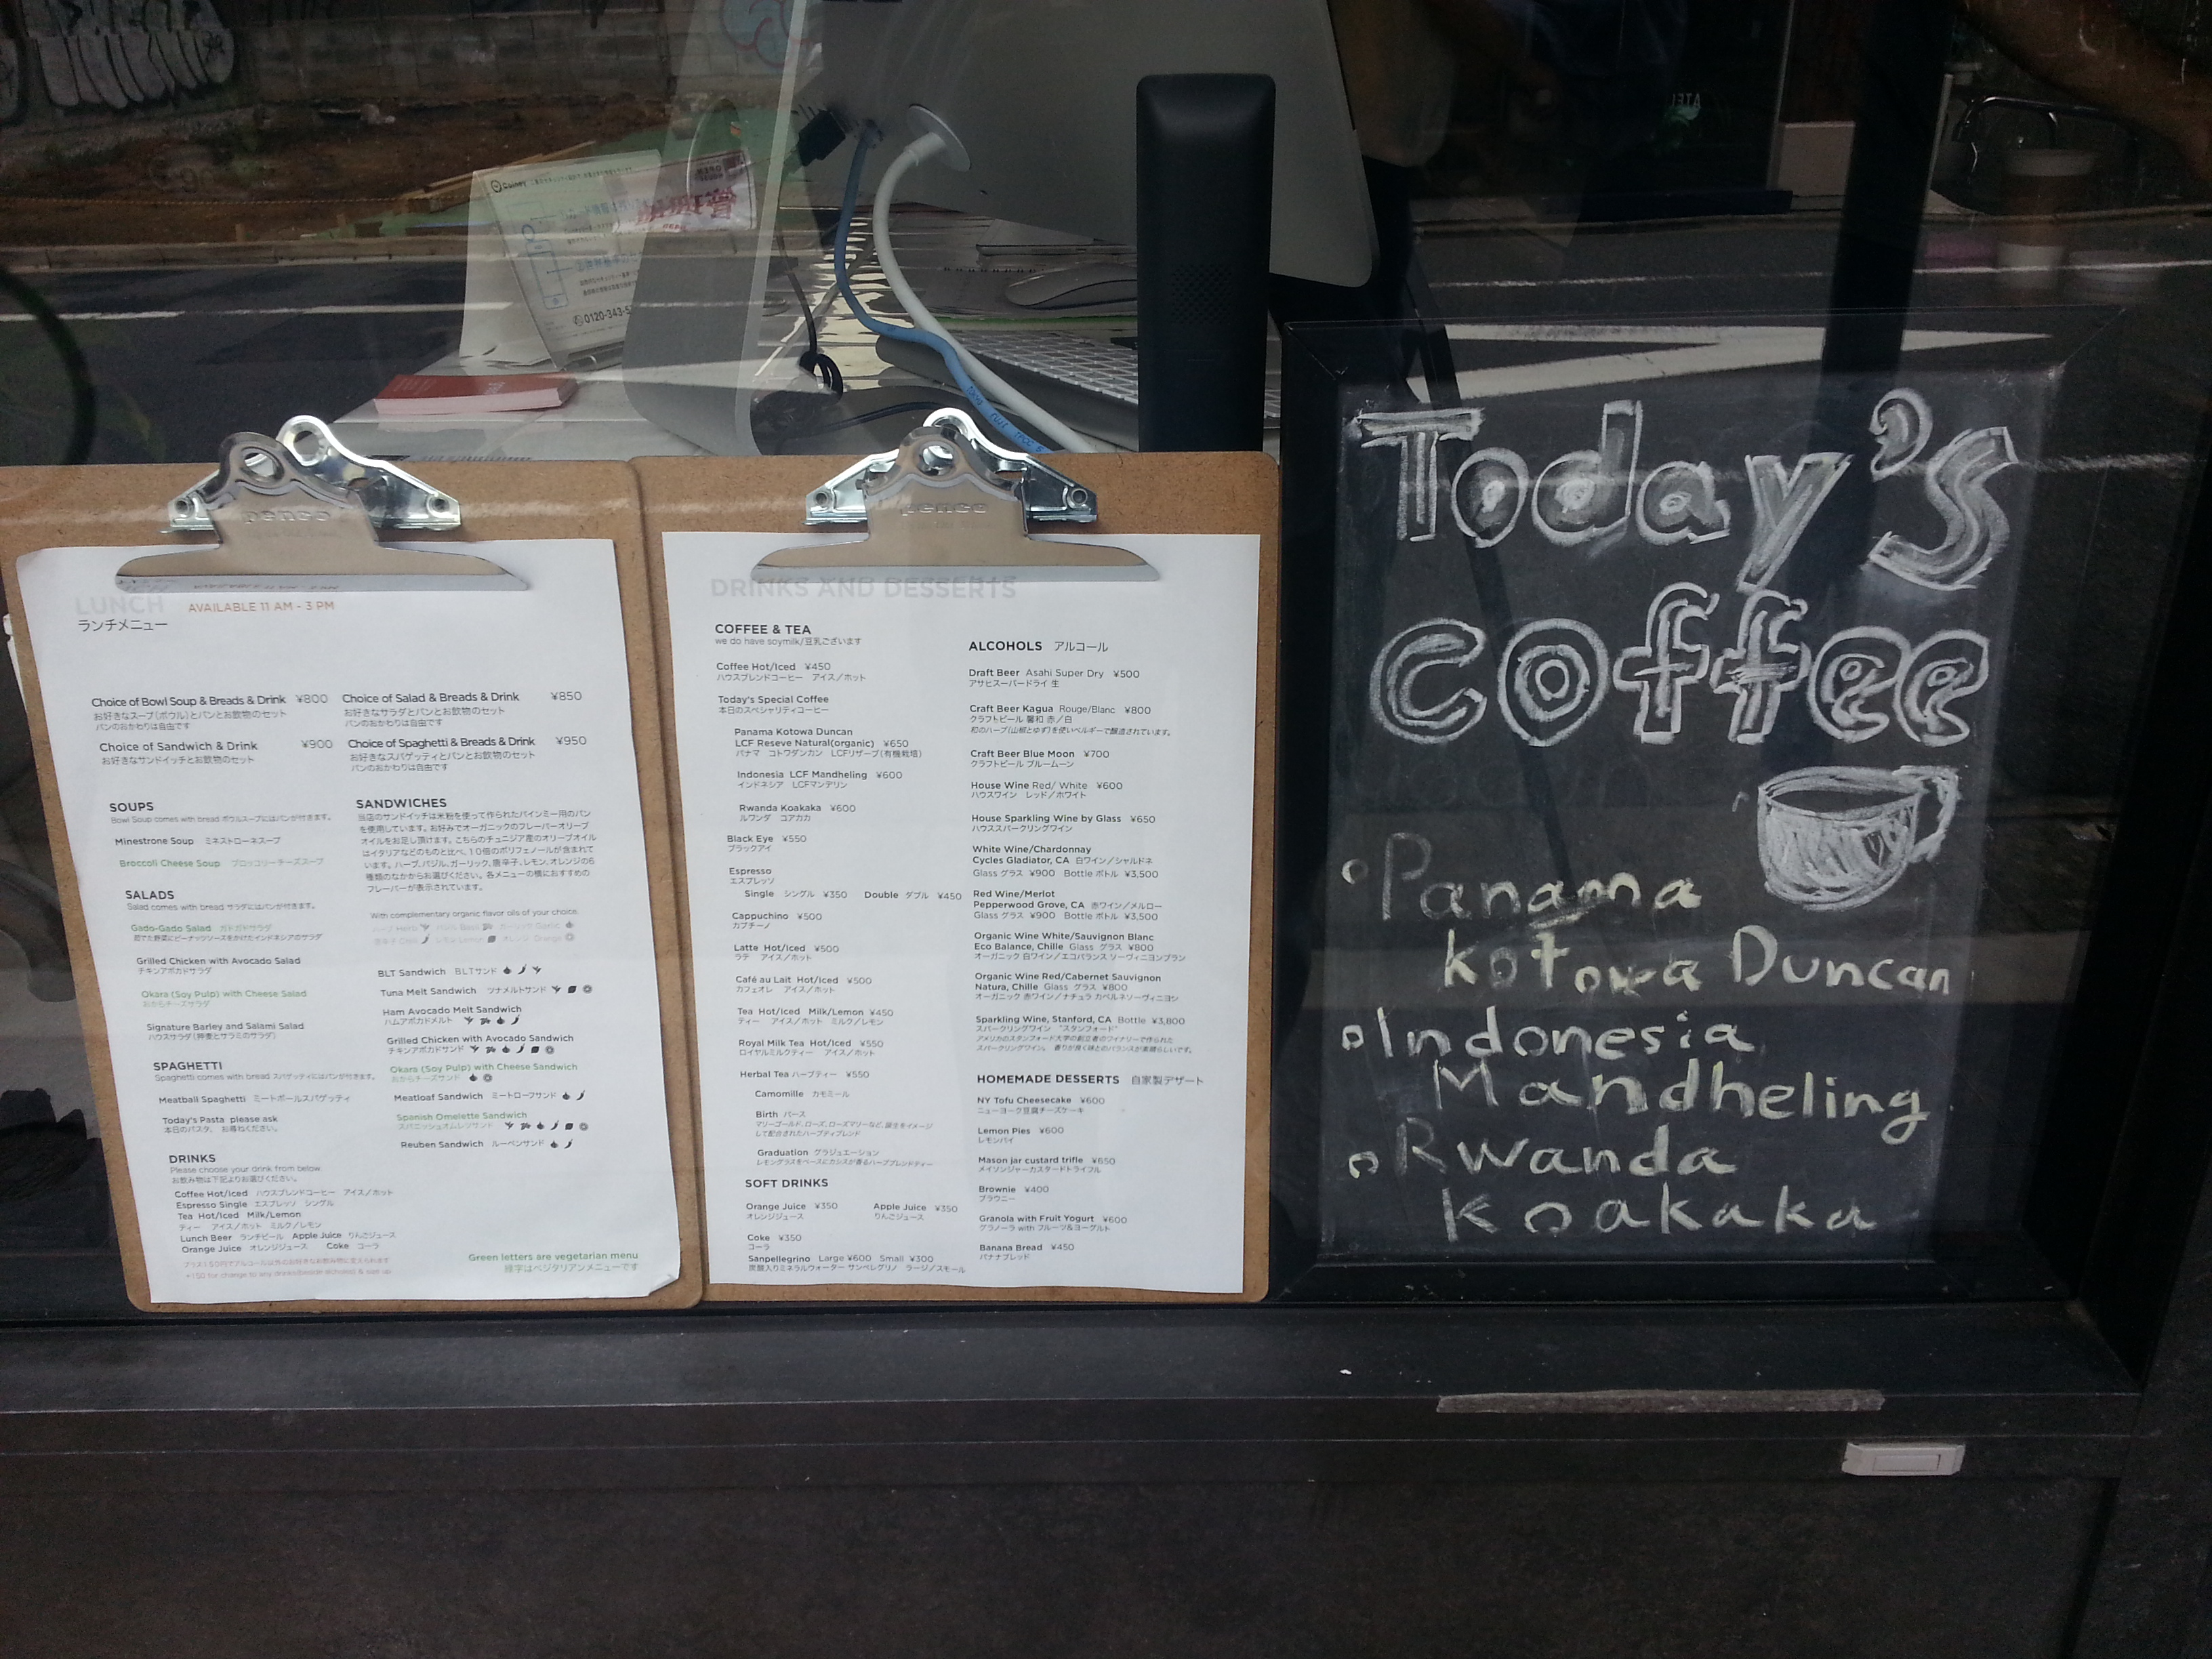 penco
LUNCH AVAILABLE 11 AM - 3 PM
ランチメニュー
Choice of Bowl Soup & Breads & Drink ¥800
お好きなスープ(ボウル)とパンとお飲物のセット
パンのおかわりは自由です
Choice of Sandwich & Drink ¥900
お好きなサンドイッチとお飲物のセット
Choice of Salad & Breads & Drink ¥850
お好きなサラダとパンとお飲物のセット
パンのおかわりは自由です
Choice of Spaghetti & Breads & Drink ¥950
お好きなスパゲッティとパンとお飲物のセット
パンのおかわりは自由です
SOUPS
Bowl Soup comes with bread ボウルスープにはパンが付きます。
Minestrone Soup ミネストローネスープ
Broccoli Cheese Soup ブロッコリーチーズスープ
SALADS
Salad comes with bread サラダにはパンが付きます。
Gado-Gado Salad ガドガドサラダ
茹でた野菜にピーナッツソースをかけたインドネシアのサラダ
Grilled Chicken with Avocado Salad
チキンアボカドサラダ
Okara (Soy Pulp) with Cheese Salad
おからチーズサラダ
Signature Barley and Salami Salad
ハウスサラダ(押麦とサラミのサラダ)
SPAGHETTI
Spaghetti comes with bread スパゲッティにはパンが付きます。
Meatball Spaghetti ミートボールスパゲッティ
Today's Pasta please ask
本日のパスタ、お尋ねください。
DRINKS
Please choose your drink from below
お飲み物は下記よりお選びください。
Coffee Hot/Iced ハウスブレンドコーヒー アイス/ホット
Espresso Single エスプレッソ シングル
Tea Hot/Iced Milk/Lemon
ティー アイス/ホット ミルク/レモン
Lunch Beer ランチビール Apple Juice りんごジュース
Orange Juice オレンジジュース Coke コーラ
SANDWICHES
当店のサンドイッチは米粉を使って作られたバインミー用のパン
を使用しています。お好みでオーガニックのフレーバーオリーブ
オイルをお足し頂けます。こちらのチュニジア産のオリーブオイル
はイタリアなどのものと比べ、10倍のポリフェノールが含まれて
います。ハーブ、バジル、ガーリック、唐辛子、レモン、オレンジの6
種類のなかからお選びください。各メニューの横におすすめの
フレーバーが表示されています。
With complementary organic flavor oils of your choice.
BLT Sandwich BLTサンド
Tuna Melt Sandwich ツナメルトサンド
Ham Avocado Melt Sandwich
ハムアボカドメルト
Grilled Chicken with Avocado Sandwich
チキンアボカドサンド
Okara (Soy Pulp) with Cheese Sandwich
おからチーズサンド
Meatloaf Sandwich ミートローフサンド
Spanish Omelette Sandwich
スパニッシュオムレツサンド
Reuben Sandwich ルーベンサンド
Green letters are vegetarian menu
緑字はベジタリアンメニューです
penco
DRINKS AND DESSERTS
COFFEE & TEA
we do have soymilk/豆乳ございます
Coffee Hot/Iced ¥450
ハウスブレンドコーヒー アイス/ホット
Today's Special Coffee
本日のスペシャリティコーヒー
Panama Kotowa Duncan
LCF Reseve Natural(organic) ¥650
パナマ コトワダンカン LCFリザーブ(有機栽培)
Indonesia LCF Mandheling ¥600
インドネシア LCFマンデリン
Rwanda Koakaka ¥600
ルワンダ コアカカ
Black Eye ¥550
ブラックアイ
Espresso
エスプレッソ
Single シングル ¥350 Double ダブル ¥450
Cappuchino ¥500
カプチーノ
Latte Hot/Iced ¥500
ラテ アイス/ホット
Café au Lait Hot/Iced ¥500
カフェオレ アイス/ホット
Tea Hot/Iced Milk/Lemon ¥450
ティー アイス/ホット ミルク/レモン
Royal Milk Tea Hot/Iced ¥550
ロイヤルミルクティー アイス/ホット
Herbal Tea ハーブティー ¥550
Camomille カモミール
Birth バース
マリーゴールド、ローズ、ローズマリーなど、誕生をイメージ
して配合されたハーブティブレンド
Graduation グラジュエーション
レモングラスをベースにカシスが香るハーブブレンドティー
SOFT DRINKS
Orange Juice ¥350 Apple Juice ¥350
オレンジジュース りんごジュース
Coke ¥350
コーラ
Sanpellegrino Large ¥600 Small ¥300
炭酸入りミネラルウォーター サンペレグリノ ラージ/スモール
ALCOHOLS アルコール
Draft Beer Asahi Super Dry ¥500
アサヒスーパードライ 生
Craft Beer Kagua Rouge/Blanc ¥800
クラフトビール 馨和 赤/白
和のハーブ(山椒とゆず)を使いベルギーで醸造されています。
Craft Beer Blue Moon ¥700
クラフトビール ブルームーン
House Wine Red/ White ¥600
ハウスワイン レッド/ホワイト
House Sparkling Wine by Glass ¥650
ハウススパークリングワイン
White Wine/Chardonnay
Cycles Gladiator, CA 白ワイン/シャルドネ
Glass グラス ¥900 Bottle ボトル ¥3,500
Red Wine/Merlot
Pepperwood Grove, CA 赤ワイン/メルロー
Glass グラス ¥900 Bottle ボトル ¥3,500
Organic Wine White/Sauvignon Blanc
Eco Balance, Chille Glass グラス ¥800
オーガニック 白ワイン/エコバランス ソーヴィニヨンブラン
Organic Wine Red/Cabernet Sauvignon
Natura, Chille Glass グラス ¥800
オーガニック 赤ワイン/ナチュラ カベルネソーヴィニヨン
Sparkling Wine, Stanford, CA Bottle ¥3,800
スパークリングワイン "スタンフォード"
アメリカのスタンフォード大学の創立者のワイナリーで作られた
スパークリングワイン。香りが良く味とのバランスが素晴らしいです。
HOMEMADE DESSERTS 自家製デザート
NY Tofu Cheesecake ¥600
ニューヨーク豆腐チーズケーキ
Lemon Pies ¥600
レモンパイ
Mason jar custard trifle ¥650
メイソンジャーカスタードトライフル
Brownie ¥400
ブラウニー
Granola with Fruit Yogurt ¥600
グラノーラ with フルーツ&ヨーグルト
Banana Bread ¥450
バナナブレッド
Today's
coffee
Panama
kotowa Duncan
Indonesia
Mandheling
Rwanda
Koakaka
0120-343-5